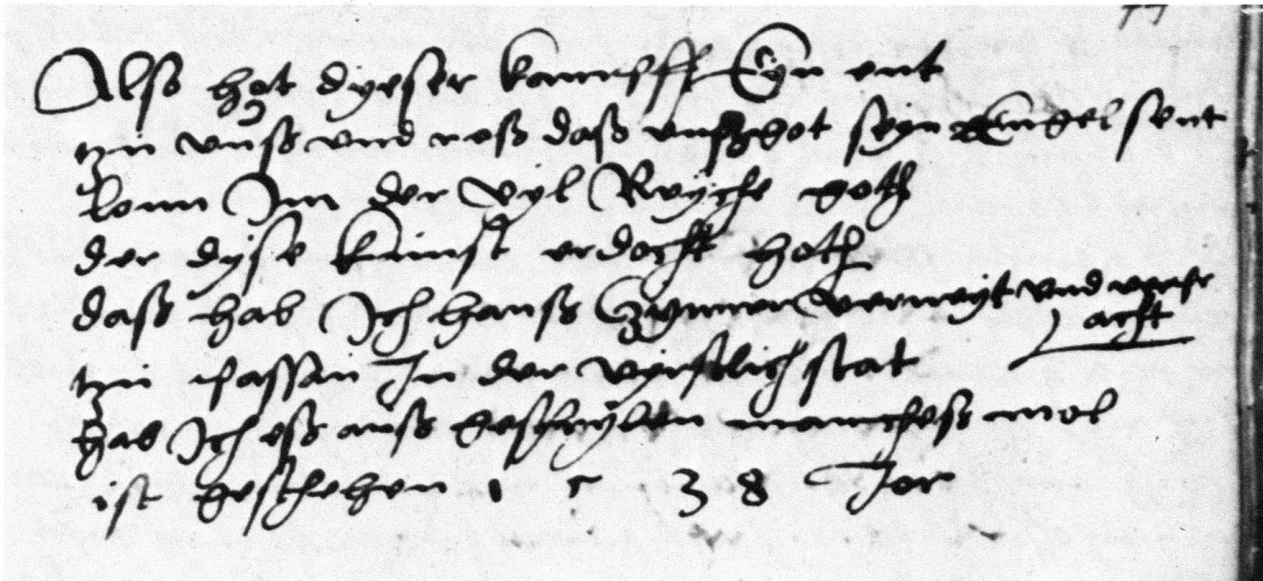 Alss hat dyeser kampff Eyn ent
tzu fuss und ross dass unss got seyn Engel sent
lonn Im der vyl Reyche goth
der dyse kunst erdacht hoth
dass hab Ich hanss Czynner verneyt und
acht
tzu passau In der vyrstlich stat
hab Ich ess auss geschryben manchess mol
ist geschehen 1 5 3 8 Jor